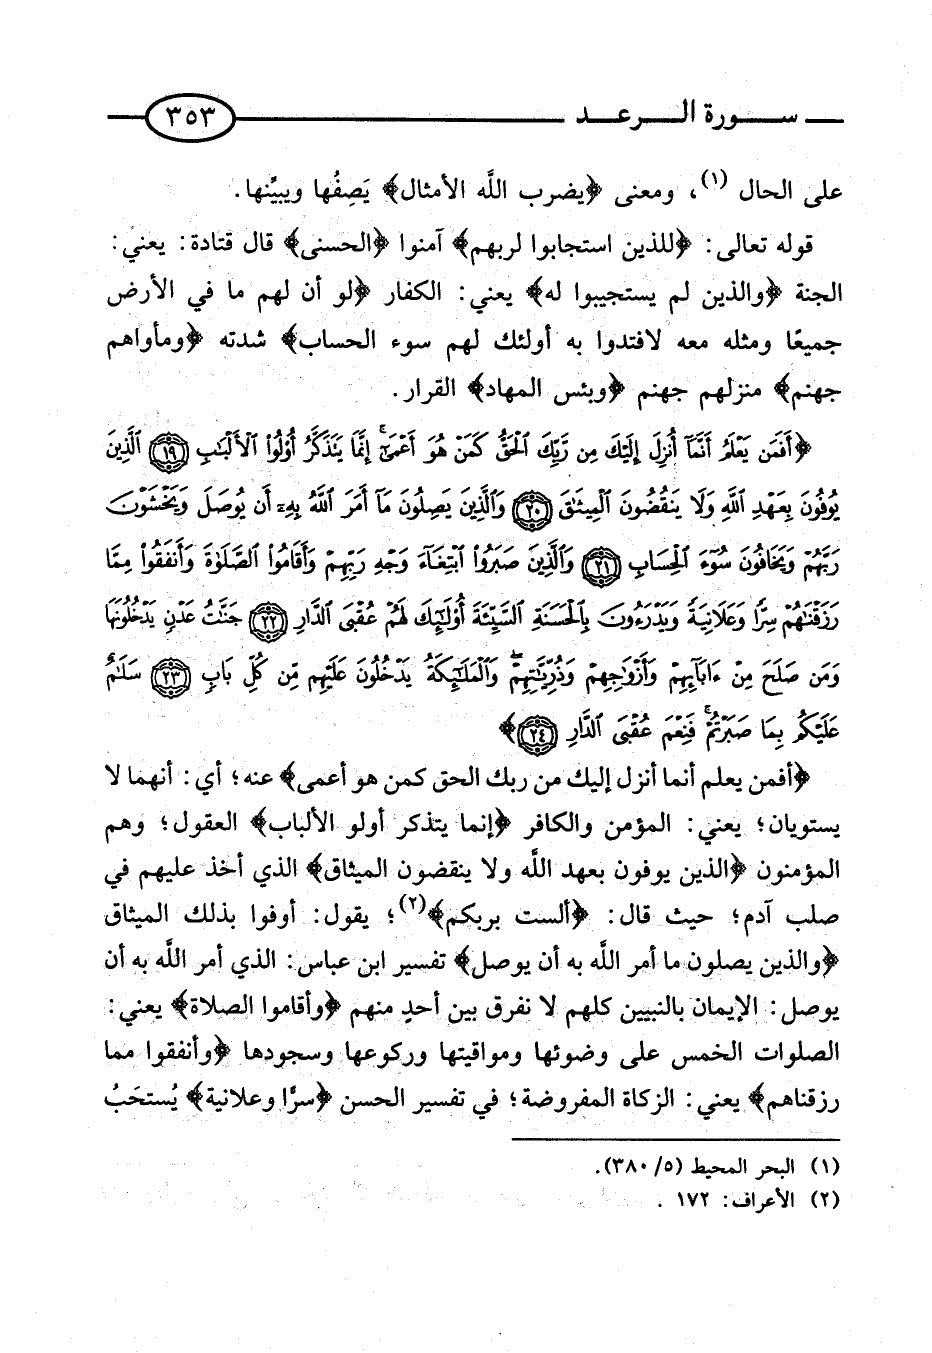 سورة الرعد ٣٥٣
على الحال (١)، ومعنى ﴿يضرب اللَّه الأمثال﴾ يَصِفُها ويبيِّنها.
قوله تعالى: ﴿للذين استجابوا لربهم﴾ آمنوا ﴿الحسنى﴾ قال قتادة: يعني:
الجنة ﴿والذين لم يستجيبوا له﴾ يعني: الكفار ﴿لو أن لهم ما في الأرض
جميعًا ومثله معه لافتدوا به أولئك لهم سوء الحساب﴾ شدته ﴿ومأواهم
جهنم﴾ منزلهم جهنم ﴿وبئس المهاد﴾ القرار.
﴿أَفَمَن يَعْلَمُ أَنَّمَآ أُنزِلَ إِلَيْكَ مِن رَّبِّكَ الْحَقُّ كَمَنْ هُوَ أَعْمَىٰٓ ۚ إِنَّمَا يَتَذَكَّرُ أُوْلُوا۟ الْأَلْبَٰبِ ١٩ الَّذِينَ
يُوفُونَ بِعَهْدِ اللَّهِ وَلَا يَنقُضُونَ الْمِيثَٰقَ ٢٠ وَالَّذِينَ يَصِلُونَ مَآ أَمَرَ اللَّهُ بِهِۦٓ أَن يُوصَلَ وَيَخْشَوْنَ
رَبَّهُمْ وَيَخَافُونَ سُوٓءَ الْحِسَابِ ٢١ وَالَّذِينَ صَبَرُوا۟ ابْتِغَآءَ وَجْهِ رَبِّهِمْ وَأَقَامُوا۟ الصَّلَوٰةَ وَأَنفَقُوا۟ مِمَّا
رَزَقْنَٰهُمْ سِرًّا وَعَلَانِيَةً وَيَدْرَءُونَ بِالْحَسَنَةِ السَّيِّئَةَ أُوْلَٰٓئِكَ لَهُمْ عُقْبَى الدَّارِ ٢٢ جَنَّٰتُ عَدْنٍ يَدْخُلُونَهَا
وَمَن صَلَحَ مِنْ ءَابَآئِهِمْ وَأَزْوَٰجِهِمْ وَذُرِّيَّٰتِهِمْ ۖ وَالْمَلَٰٓئِكَةُ يَدْخُلُونَ عَلَيْهِم مِّن كُلِّ بَابٍ ٢٣ سَلَٰمٌ
عَلَيْكُم بِمَا صَبَرْتُمْ ۚ فَنِعْمَ عُقْبَى الدَّارِ ٢٤﴾
﴿أفمن يعلم أنما أنزل إليك من ربك الحق كمن هو أعمى﴾ عنه؛ أي: أنهما لا
يستويان؛ يعني: المؤمن والكافر ﴿إنما يتذكر أولو الألباب﴾ العقول؛ وهم
المؤمنون ﴿الذين يوفون بعهد اللَّه ولا ينقضون الميثاق﴾ الذي أخذ عليهم في
صلب آدم؛ حيث قال: ﴿ألست بربكم﴾(٢)؛ يقول: أوفوا بذلك الميثاق
﴿والذين يصلون ما أمر اللَّه به أن يوصل﴾ تفسير ابن عباس: الذي أمر اللَّه به أن
يوصل: الإيمان بالنبيين كلهم لا نفرق بين أحدٍ منهم ﴿وأقاموا الصلاة﴾ يعني:
الصلوات الخمس على وضوئها ومواقيتها وركوعها وسجودها ﴿وأنفقوا مما
رزقناهم﴾ يعني: الزكاة المفروضة؛ في تفسير الحسن ﴿سرًّا وعلانية﴾ يُستحَبُ
(١) البحر المحيط (٥/ ٣٨٠).
(٢) الأعراف: ١٧٢ .